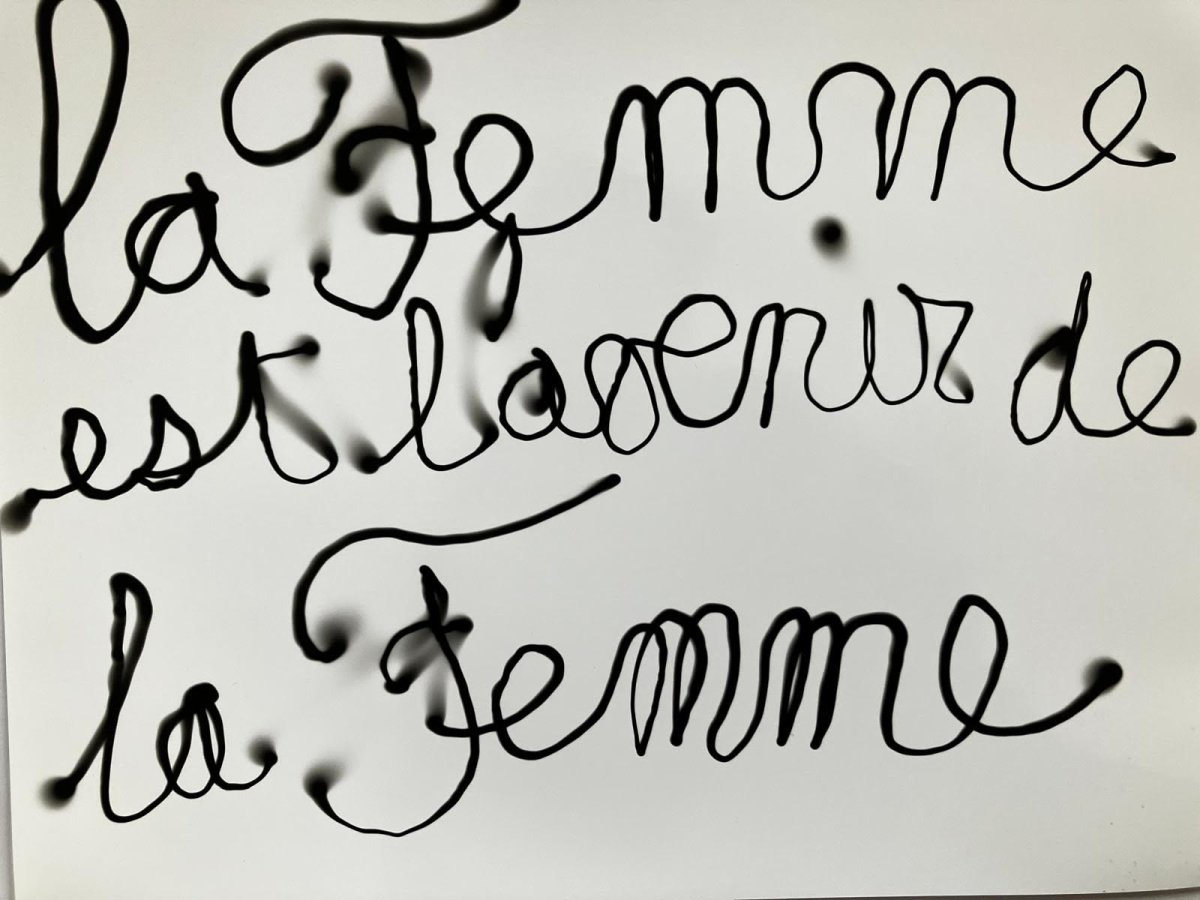 la Femme
est l'avenir de
la Femme